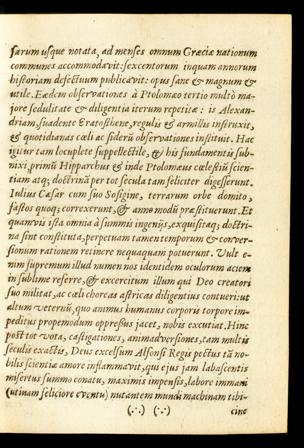 sarum usque notata, ad menses omnium Græciæ nationum
communes accommodavit: sexcentorum inquam annorum
historiam defectuum publicavit: opus sane & magnum &
utile. Eædem observationes à Ptolomæo tertio multò ma-
jore sedulitate & diligentia iterum repetitæ: is Alexan-
driam, suadente Eratosthene, regulis & armillis instruxit,
& quotidianas cœli ac siderũ observationes instituit. Hac
igitur tam locuplete suppellectile, & his fundamentis sub-
nixi primũ Hipparchus & inde Ptolomæus cœlestiũ scien-
tiam atq; doctrinã per tot secula tam feliciter digesserunt.
Iulius Cæsar cum suo Sosigine, terrarum orbe domito,
fastos quoq; correxerunt, & anno modũ præstituerunt. Et
quamvis ista omnia à summis ingenijs, exquisitaq; doctri-
na sint constituta, perpetuam tamen temporum & conver-
sionum rationem recinere nequaquam potuerunt. Vult e-
nim supremum illud numen nos identidem oculorum aciem
in sublime referre, & exercitum illum qui Deo creatori
suo militat, ac cœli choreas astricas diligentius contueri: ut
altum veternũ, quo animus humanus corporis torpore im-
peditus propemodum oppressus jacet, nobis excutiat. Hinc
post tot vota, castigationes, animadversiones, tam multis
seculis exactis, Deus excelsum Alfonsi Regis pectus tã no-
bilis scientiæ amore inflammavit, qui ejus jam labascentis
misertus summo conatu, maximis impensis, labore immani
(utinam feliciore eventu) nutantem mundi machinam tibi-
cine